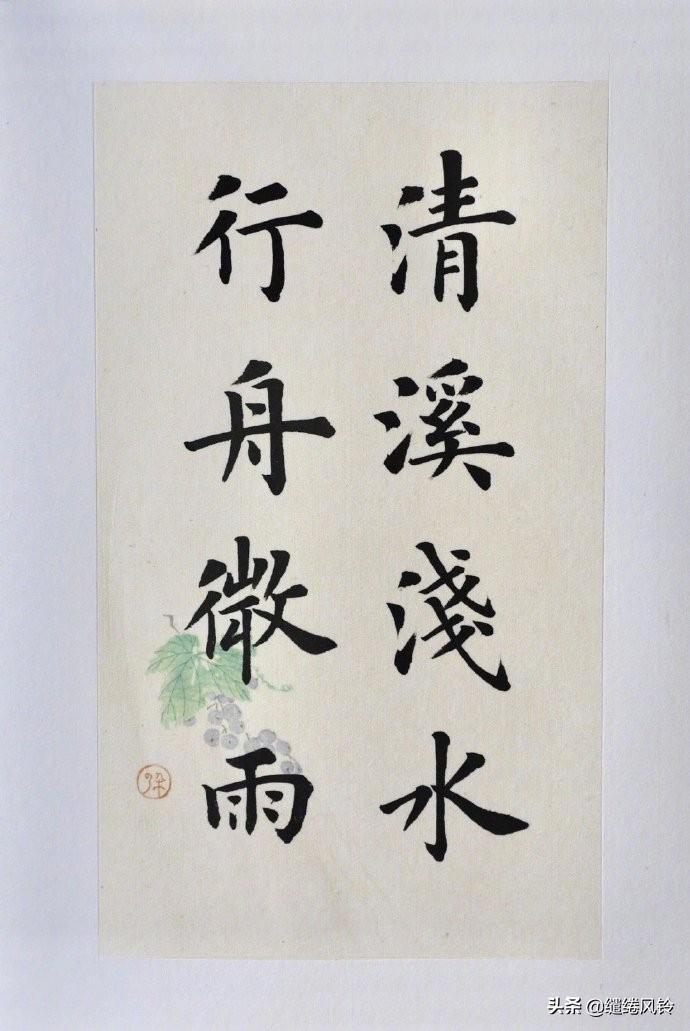 清溪淺水
行舟微雨
头条 @缱绻风铃